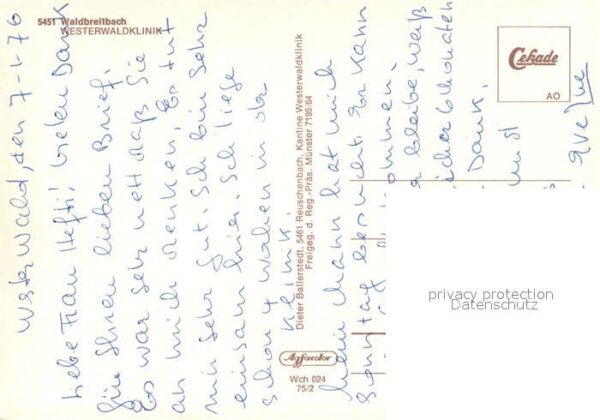 5451 Waldbreitbach
WESTERWALDKLINIK
Westerwald, den 7-1-76
Liebe Frau Hefti! Vielen Dank
für Ihren lieben Brief.
Es war sehr nett daß Sie
an mich denken, Es tut
mir sehr gut. Ich bin sehr
einsam hier. Ich liege
schon 4 Wochen in der
Klinik.
Mein Mann hat mich
Sonntag besucht. Er kann
ommen.
bleibe, weiß
Dank.
und
Eve
Dieter Ballerstedt, 5461 Reuschenbach, Kantine Westerwaldklinik
Freigeg. d. Reg.-Präs. Münster 7195/64
Agfacolor
Wch 024
75/2
Cekade
AO
privacy protection
Datenschutz